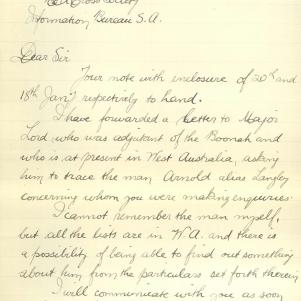 Red Cross Society
Information Bureau S.A.
Dear Sir
Your note with enclosure of 20th and
18th Jany respectively to hand.
I have forwarded a letter to Major
Lord who was adjutant of the Boonah and
who is at present in West Australia, asking
him to trace the man Arnold alias Langley
concerning whom you were making enquiries.
I cannot remember the man myself,
but all the lists are in W.A. and there is
a possibility of being able to find out something
about him from the particulars set forth therein.
I will communicate with you as soon